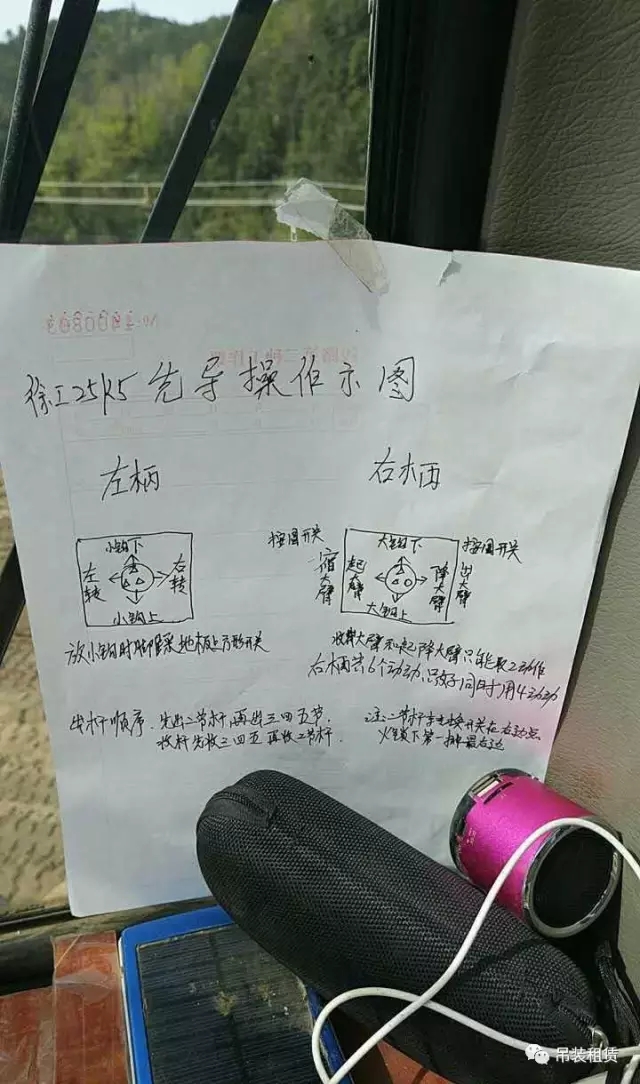 徐工25K5先导操作示图
左柄
右柄
小钩下
左转
右转
小钩上
按圆开关
缩大臂
大钩下
起大臂
降大臂
大钩上
按圆开关
出大臂
放小钩时脚踩地板上方形开关
收大臂 起降大臂只能取2动作
右柄共6个动动,只好同时用4动动
出杆顺序.先出二节杆,再出三四五节
收杆先收三四五再收二节杆.
注:二节杆 换开关在右边点
火锁下第一排最右边
吊装租赁